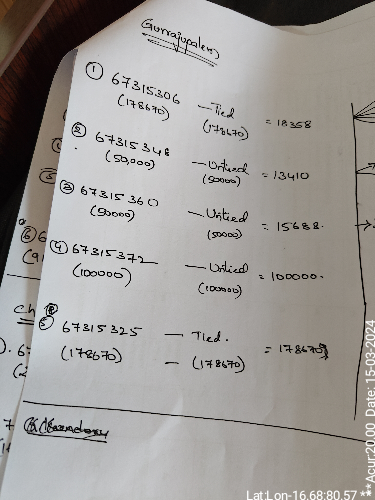 Gurrajupalem
① 67315306 — Tied
(178670) (178670) = 18358
② 67315348 — Untied
(50,000) (50000) = 13410
③ 67315360 — Untied
(50000) (50000) = 15688.
④ 67315372 — Untied
(100000) (100000) = 100000.
⑤ 67315325 — Tied.
(178670) — (178670) = 178670
ch
Lat:Lon-16.68:80.57 ** Acur:20.00 Date:15-03-2024